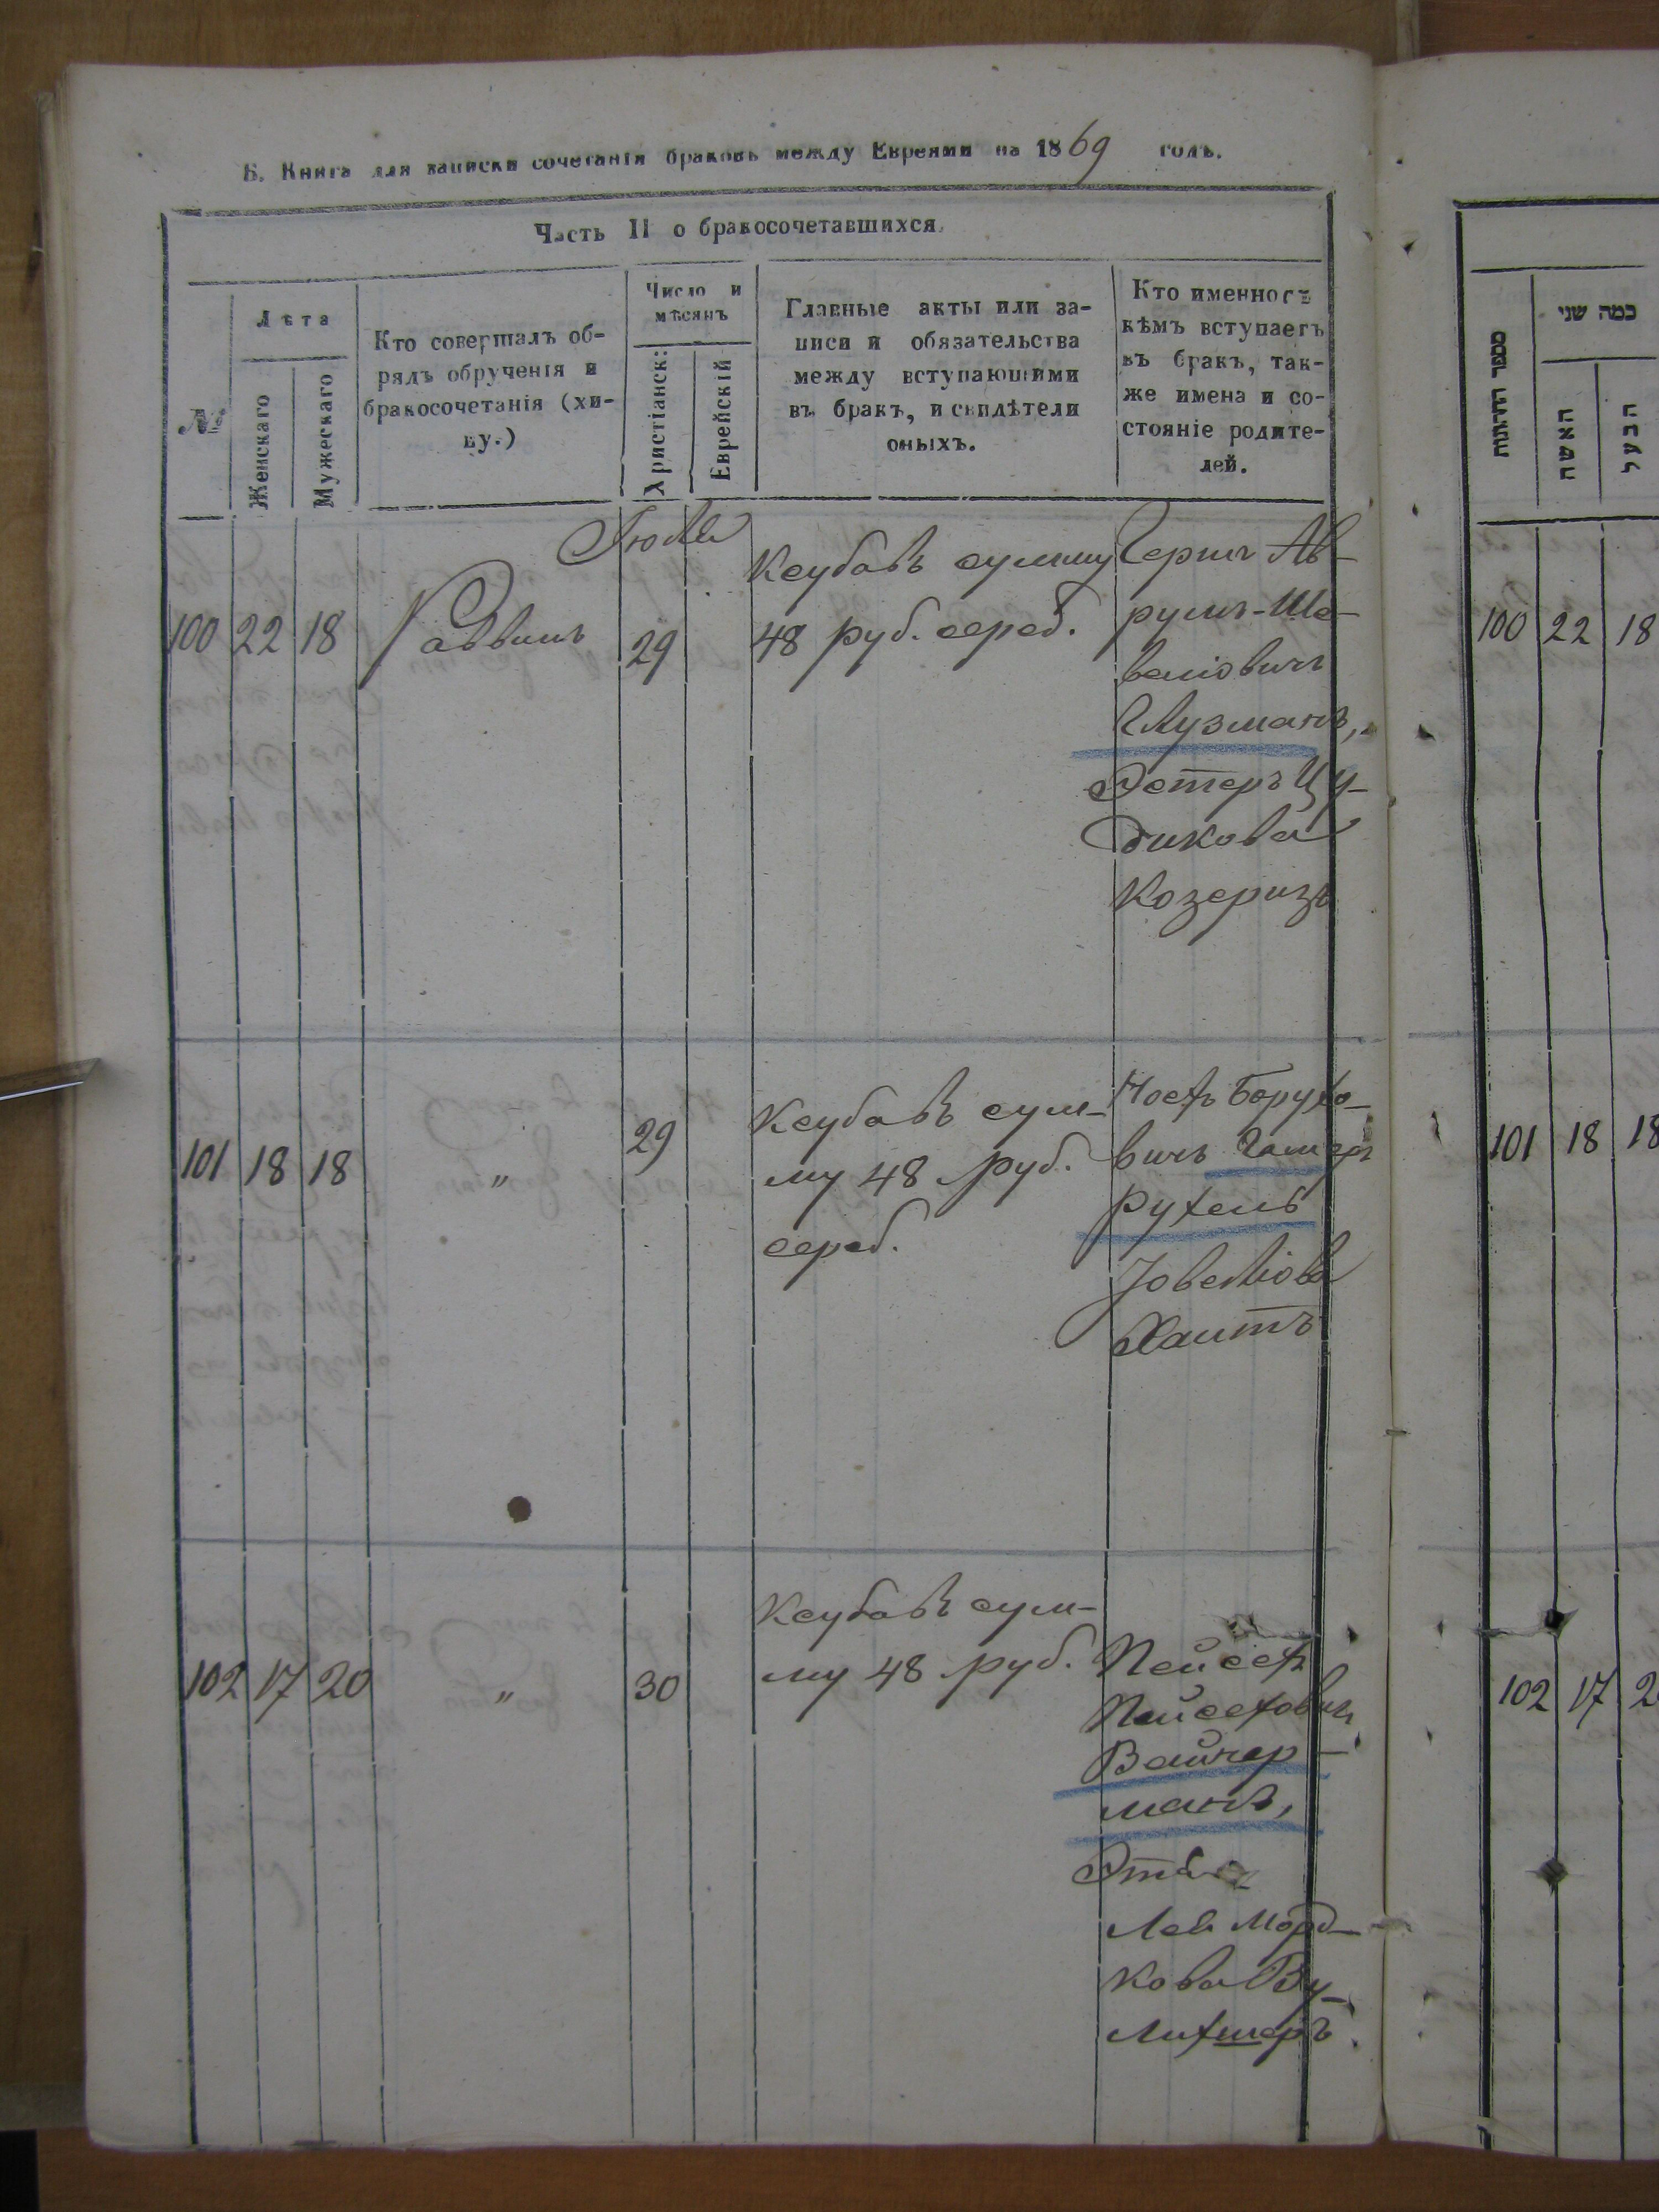 Б. Книга для записки сочетанія браковъ между Евреями на 1869 годъ.
Часть II о бракосочетавшихся.
№
Лѣта
Женскаго
Мужескаго
Кто совершалъ об-
рядъ обрученія и
бракосочетанія (хи-
ву.)
Число и
мѣсяцъ
Христіанск:
Еврейскій
Главные акты или за-
писи и обязательства
между вступающими
въ бракъ, и свидѣтели
оныхъ.
Кто именно съ
кѣмъ вступаетъ
въ бракъ, так-
же имена и со-
стояніе родите-
лей.
Іюля
100 22 18 Раввинъ 29
Ксубавъ сумму
48 руб. сереб.
Герш Ав-
румъ-Ше-
веліовичъ
Глузманъ,
Эстеръ Цу-
дикова
Козеризъ
101 18 18 " 29
Ксубавъ сум-
му 48 руб.
сереб.
Іосъ Борухо-
вичъ
Рухель
Іовеліова
102 17 20 " 30
Ксубавъ сум-
му 48 руб.
Пейсех
Пейсехович
Вайнер-
манъ,
Лея Морд-
кова Ву-
лихмеръ.
מספר הדרגות
כמה שני
האשה
הבעל
100 22 18
101 18 18
102 17